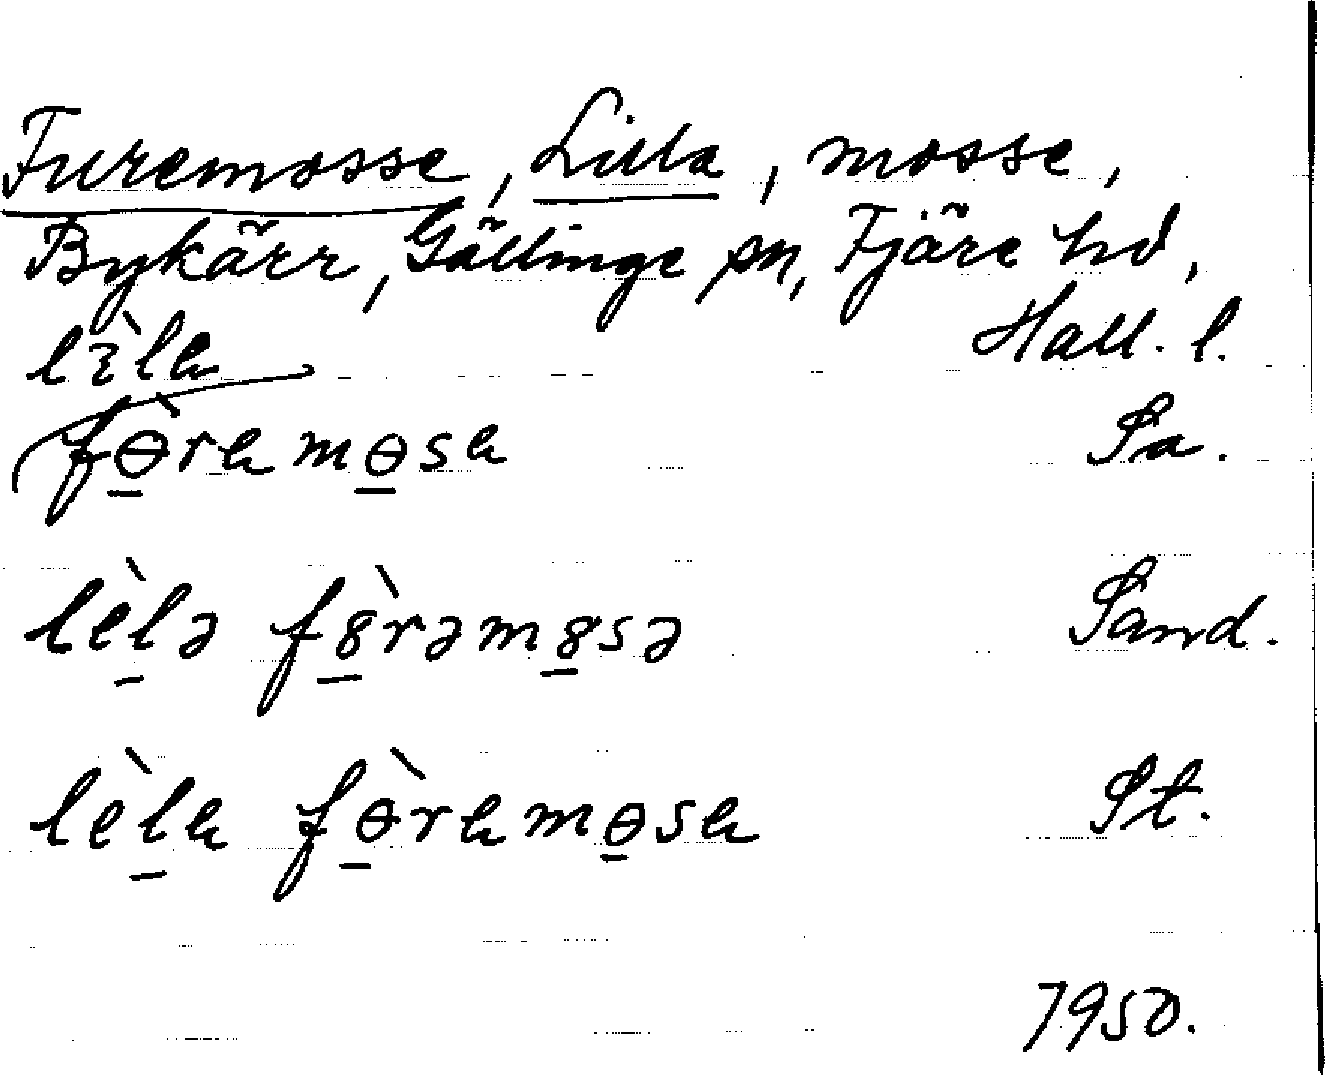 Furemosse, Lilla, mosse,
Bykärr, Gällinge sn, Fjäre hd,
lìla Hall. l.
fɵ̀ramɵsa Sa.
lèlə fȣ̀rəmȣsə Sand.
lèla fɵ̀ramɵsa St.
1950.